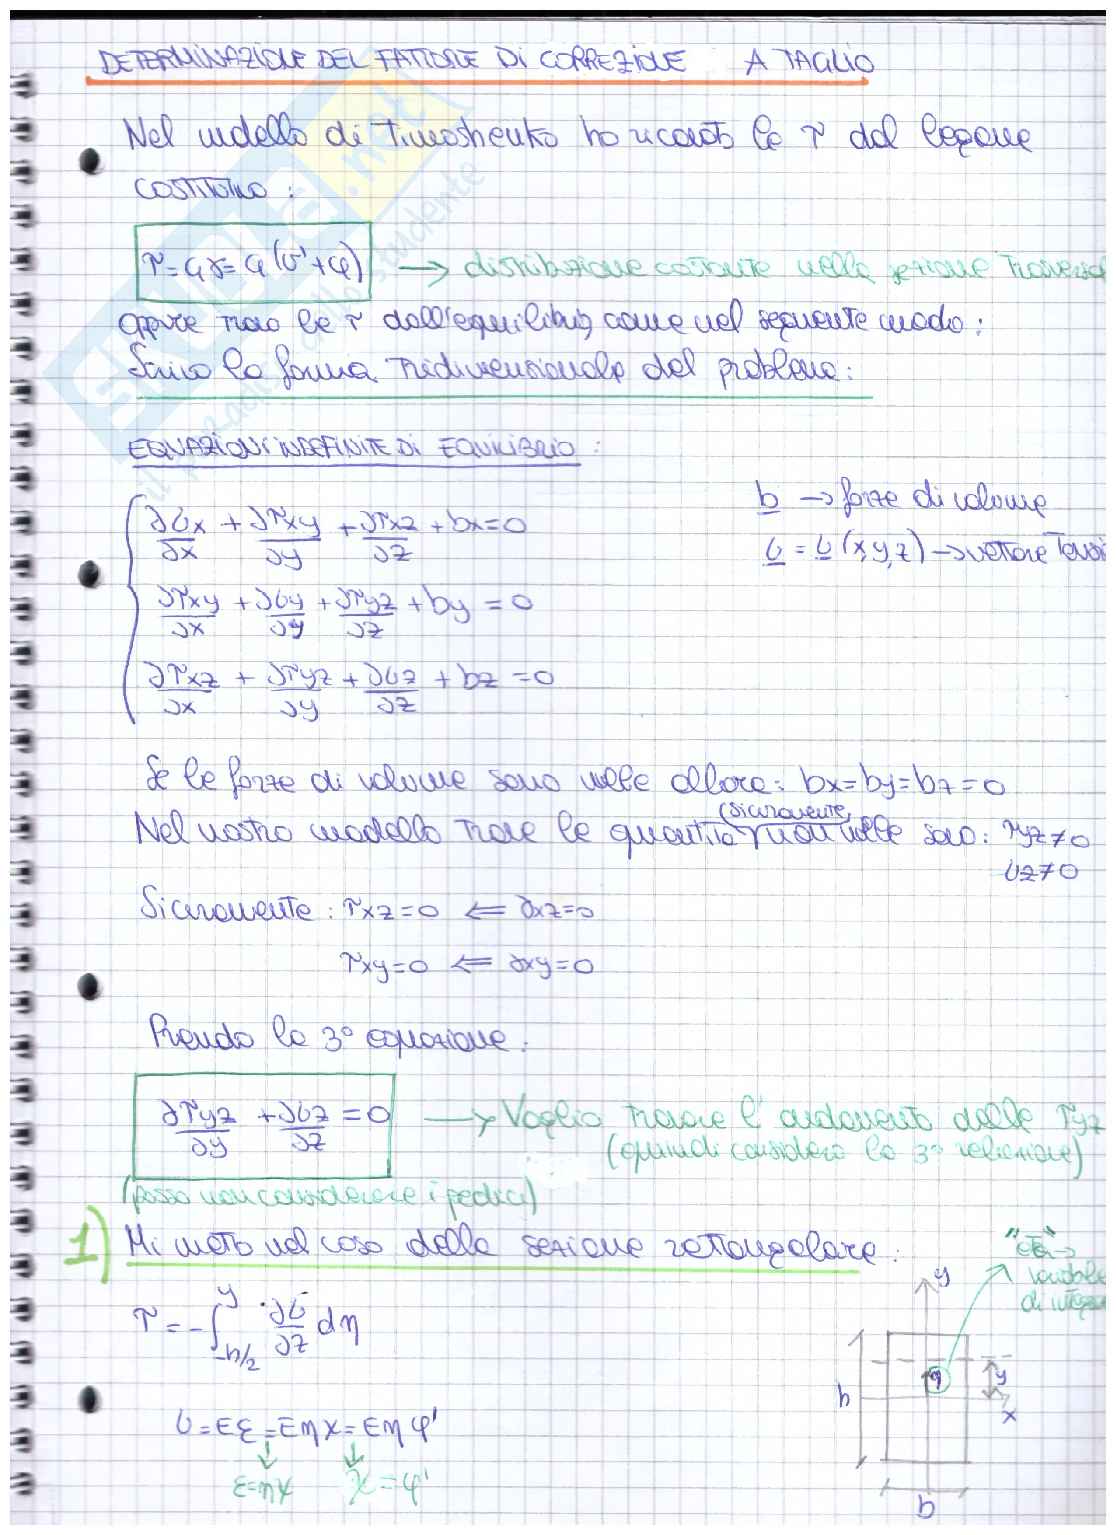 DETERMINAZIONE DEL FATTORE DI CORREZIONE A TAGLIO
Nel modello di Timoshenko ho ricavato le τ dal legame
costitutivo :
τ=Gγ=G(v'+φ) → distribuzione costante nella sezione trasversal
oppure trovo le τ dall'equilibrio, come nel seguente modo :
Scrivo la forma tridimensionale del problema :
EQUAZIONI INDEFINITE DI EQUILIBRIO :
∂σx/∂x + ∂τxy/∂y + ∂τxz/∂z + bx = 0
b → forze di volume
σ = σ(x,y,z) → vettore Tensi
∂τxy/∂x + ∂σy/∂y + ∂τyz/∂z + by = 0
∂τxz/∂x + ∂τyz/∂y + ∂σz/∂z + bz = 0
Se le forze di volume sono nulle allora : bx=by=bz=0
(sicuramente)
Nel nostro modello trave le quantità non nulle sono : τyz≠0
σz≠0
Sicuramente : τxz=0 ⇐ γxz=0
τxy=0 ⇐ γxy=0
Prendo la 3° equazione :
∂τyz/∂y + ∂σz/∂z = 0 → Voglio trovare l'andamento delle τyz
(quindi considero la 3° relazione)
(posso non considerare i pedici)
1) Mi metto nel caso della sezione rettangolare :
"eta" →
variabile
di integra
τ = -∫_{-h/2}^{y} ∂σ/∂z dη
y
η
y
h
x
b
σ=Eε=Eηχ=Eηφ'
ε=ηχ χ=φ'
SKUOLA.net
il paradiso dello studente